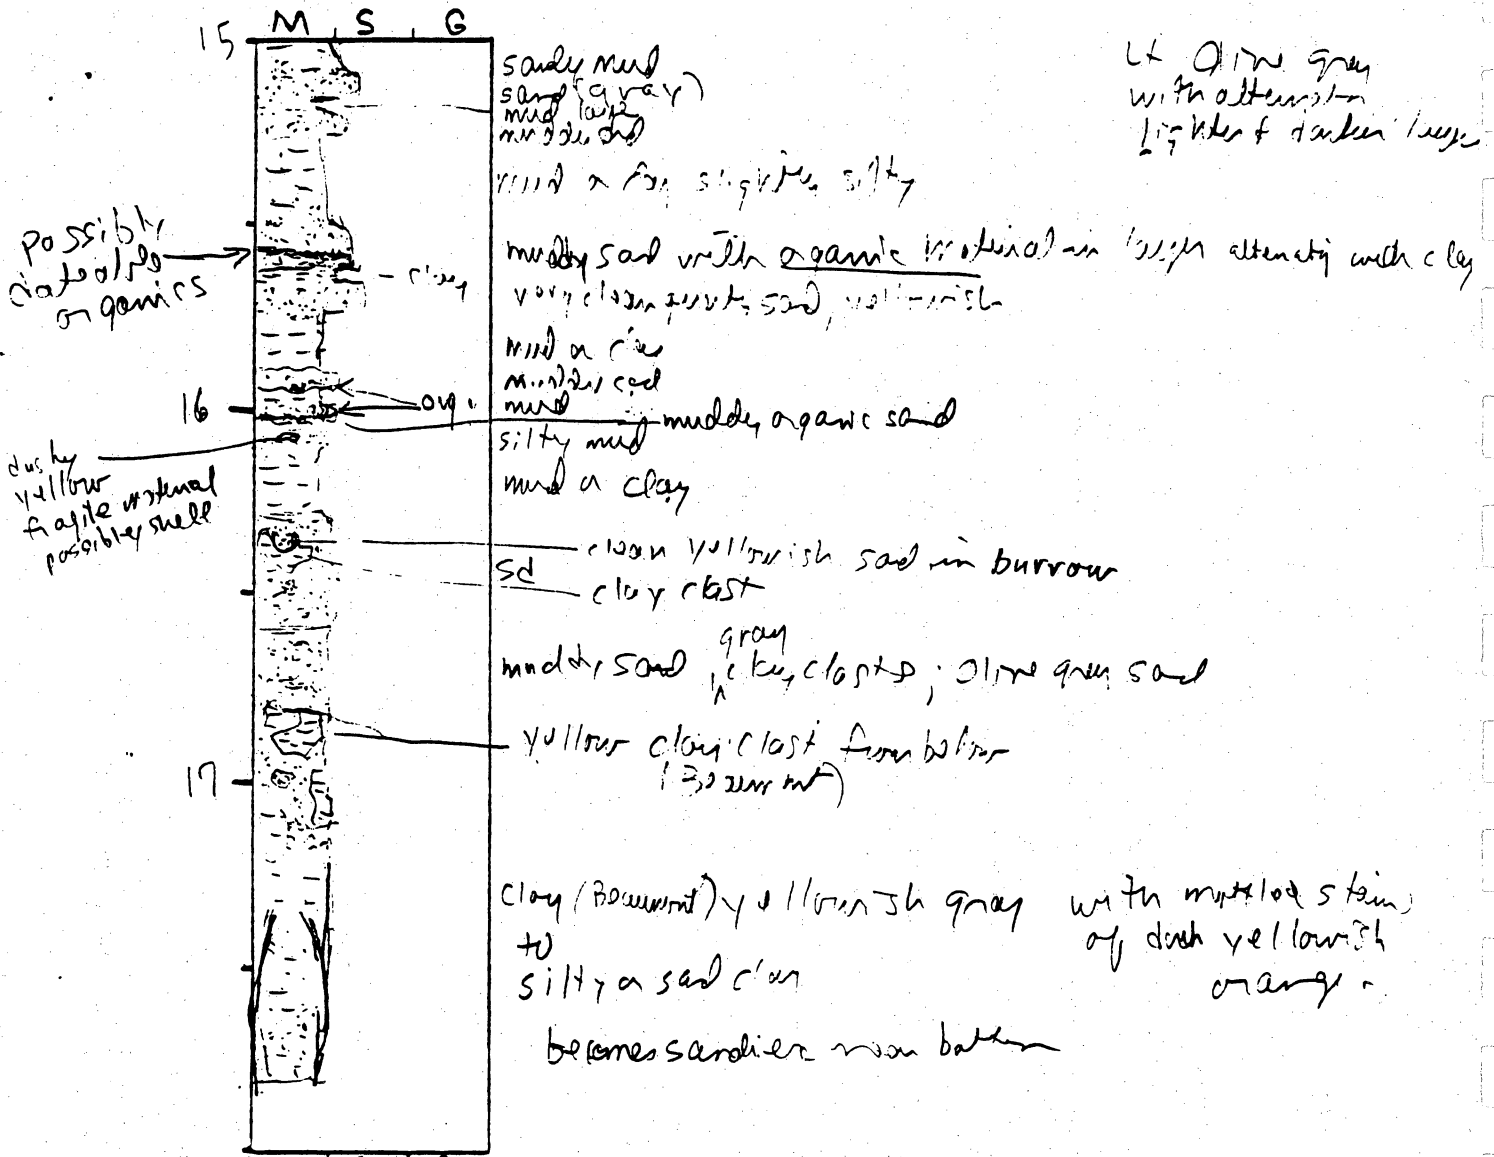 M S G
15
sandy mud
sand (gray)
mud layer
muddy sd
Lt Olive gray
with
lighter & darker
mud or slightly silty
possibly
dateable
organics
muddy sand with organic material in alternatig with clay
clay
very clean sand, yellowish
mud or clay
muddy sad
16
org.
mud
muddy organic sand
silty mud
dusky
yellow
fragile material
possibly shell
mud or clay
clean yellowish sad in burrow
sd
clay clast
gray
muddy sand ^ clay clasts; Olive gray sand
yellow clay clast from below
(Beaumont)
17
clay (Beaumont) yellowish gray with mottled stains
to of dark yellowish
silty or sad clay orange.
becomes sandier near bottom